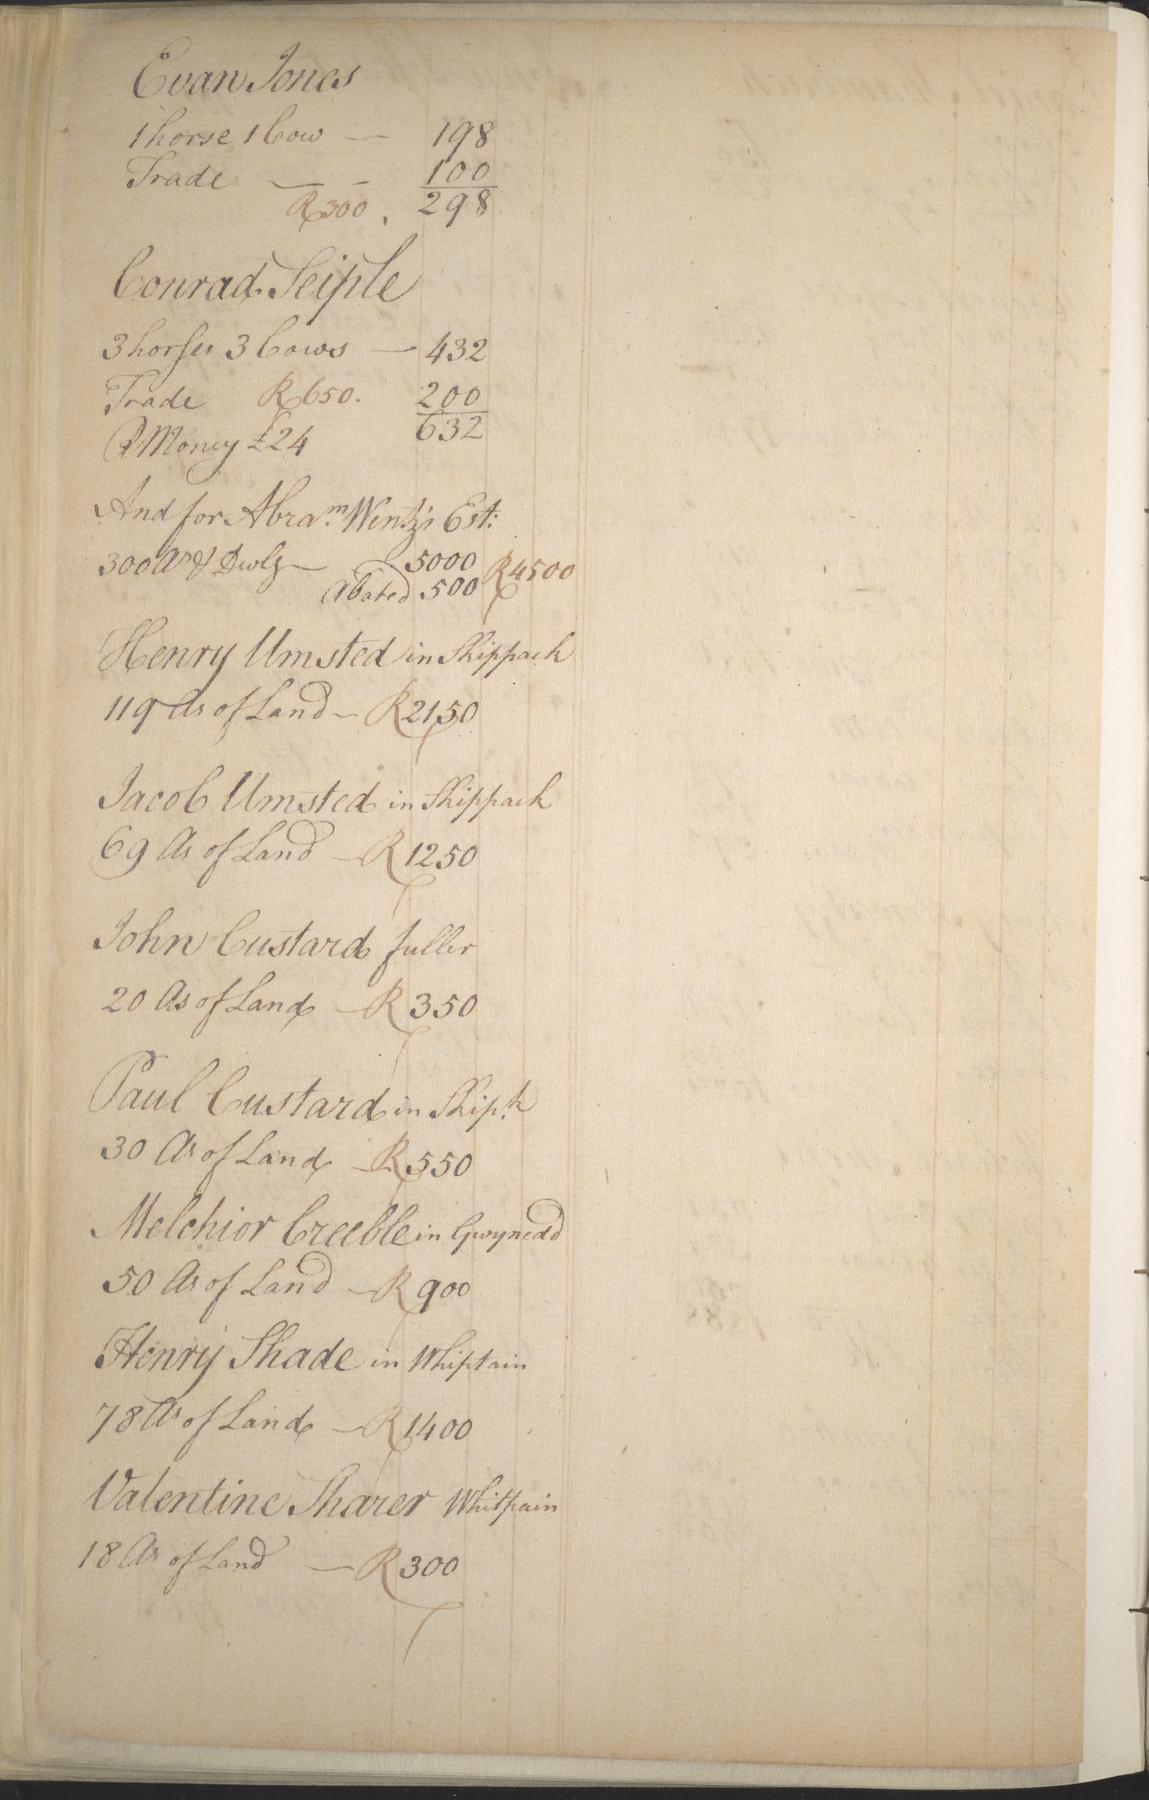 Evan Jones
1 horse 1 Cow — 198
Trade — - 100
R300. 298
Conrad Seiple
3 horses 3 Cows — 432
Trade R650. 200
Money £24 632
And for Abra.m Wentz's Est:
300 As & Dwlg — 5000 R4500
Abated 500
Henry Umsted in Skippack
119 As of Land — R2150
Jacob Umsted in Skippack
69 As of Land — R1250
John Custard fuller
20 As of Land — R350
Paul Custard in Skip.k
30 As of Land — R550
Melchior Creeble in Gwynedd
50 As of Land — R900
Henry Shade in Whiptain
78 As of Land — R1400
Valentine Sharer Whitpain
18 As of Land — R300